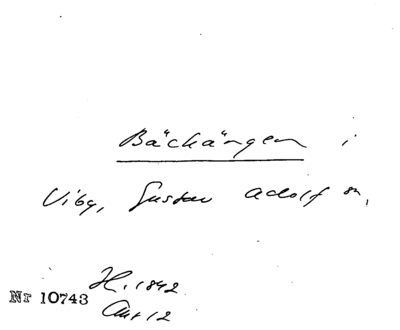 Bäckängen i
Viby, Gustav Adolf sn,
H. 1842
Nr 10743
Ant 12